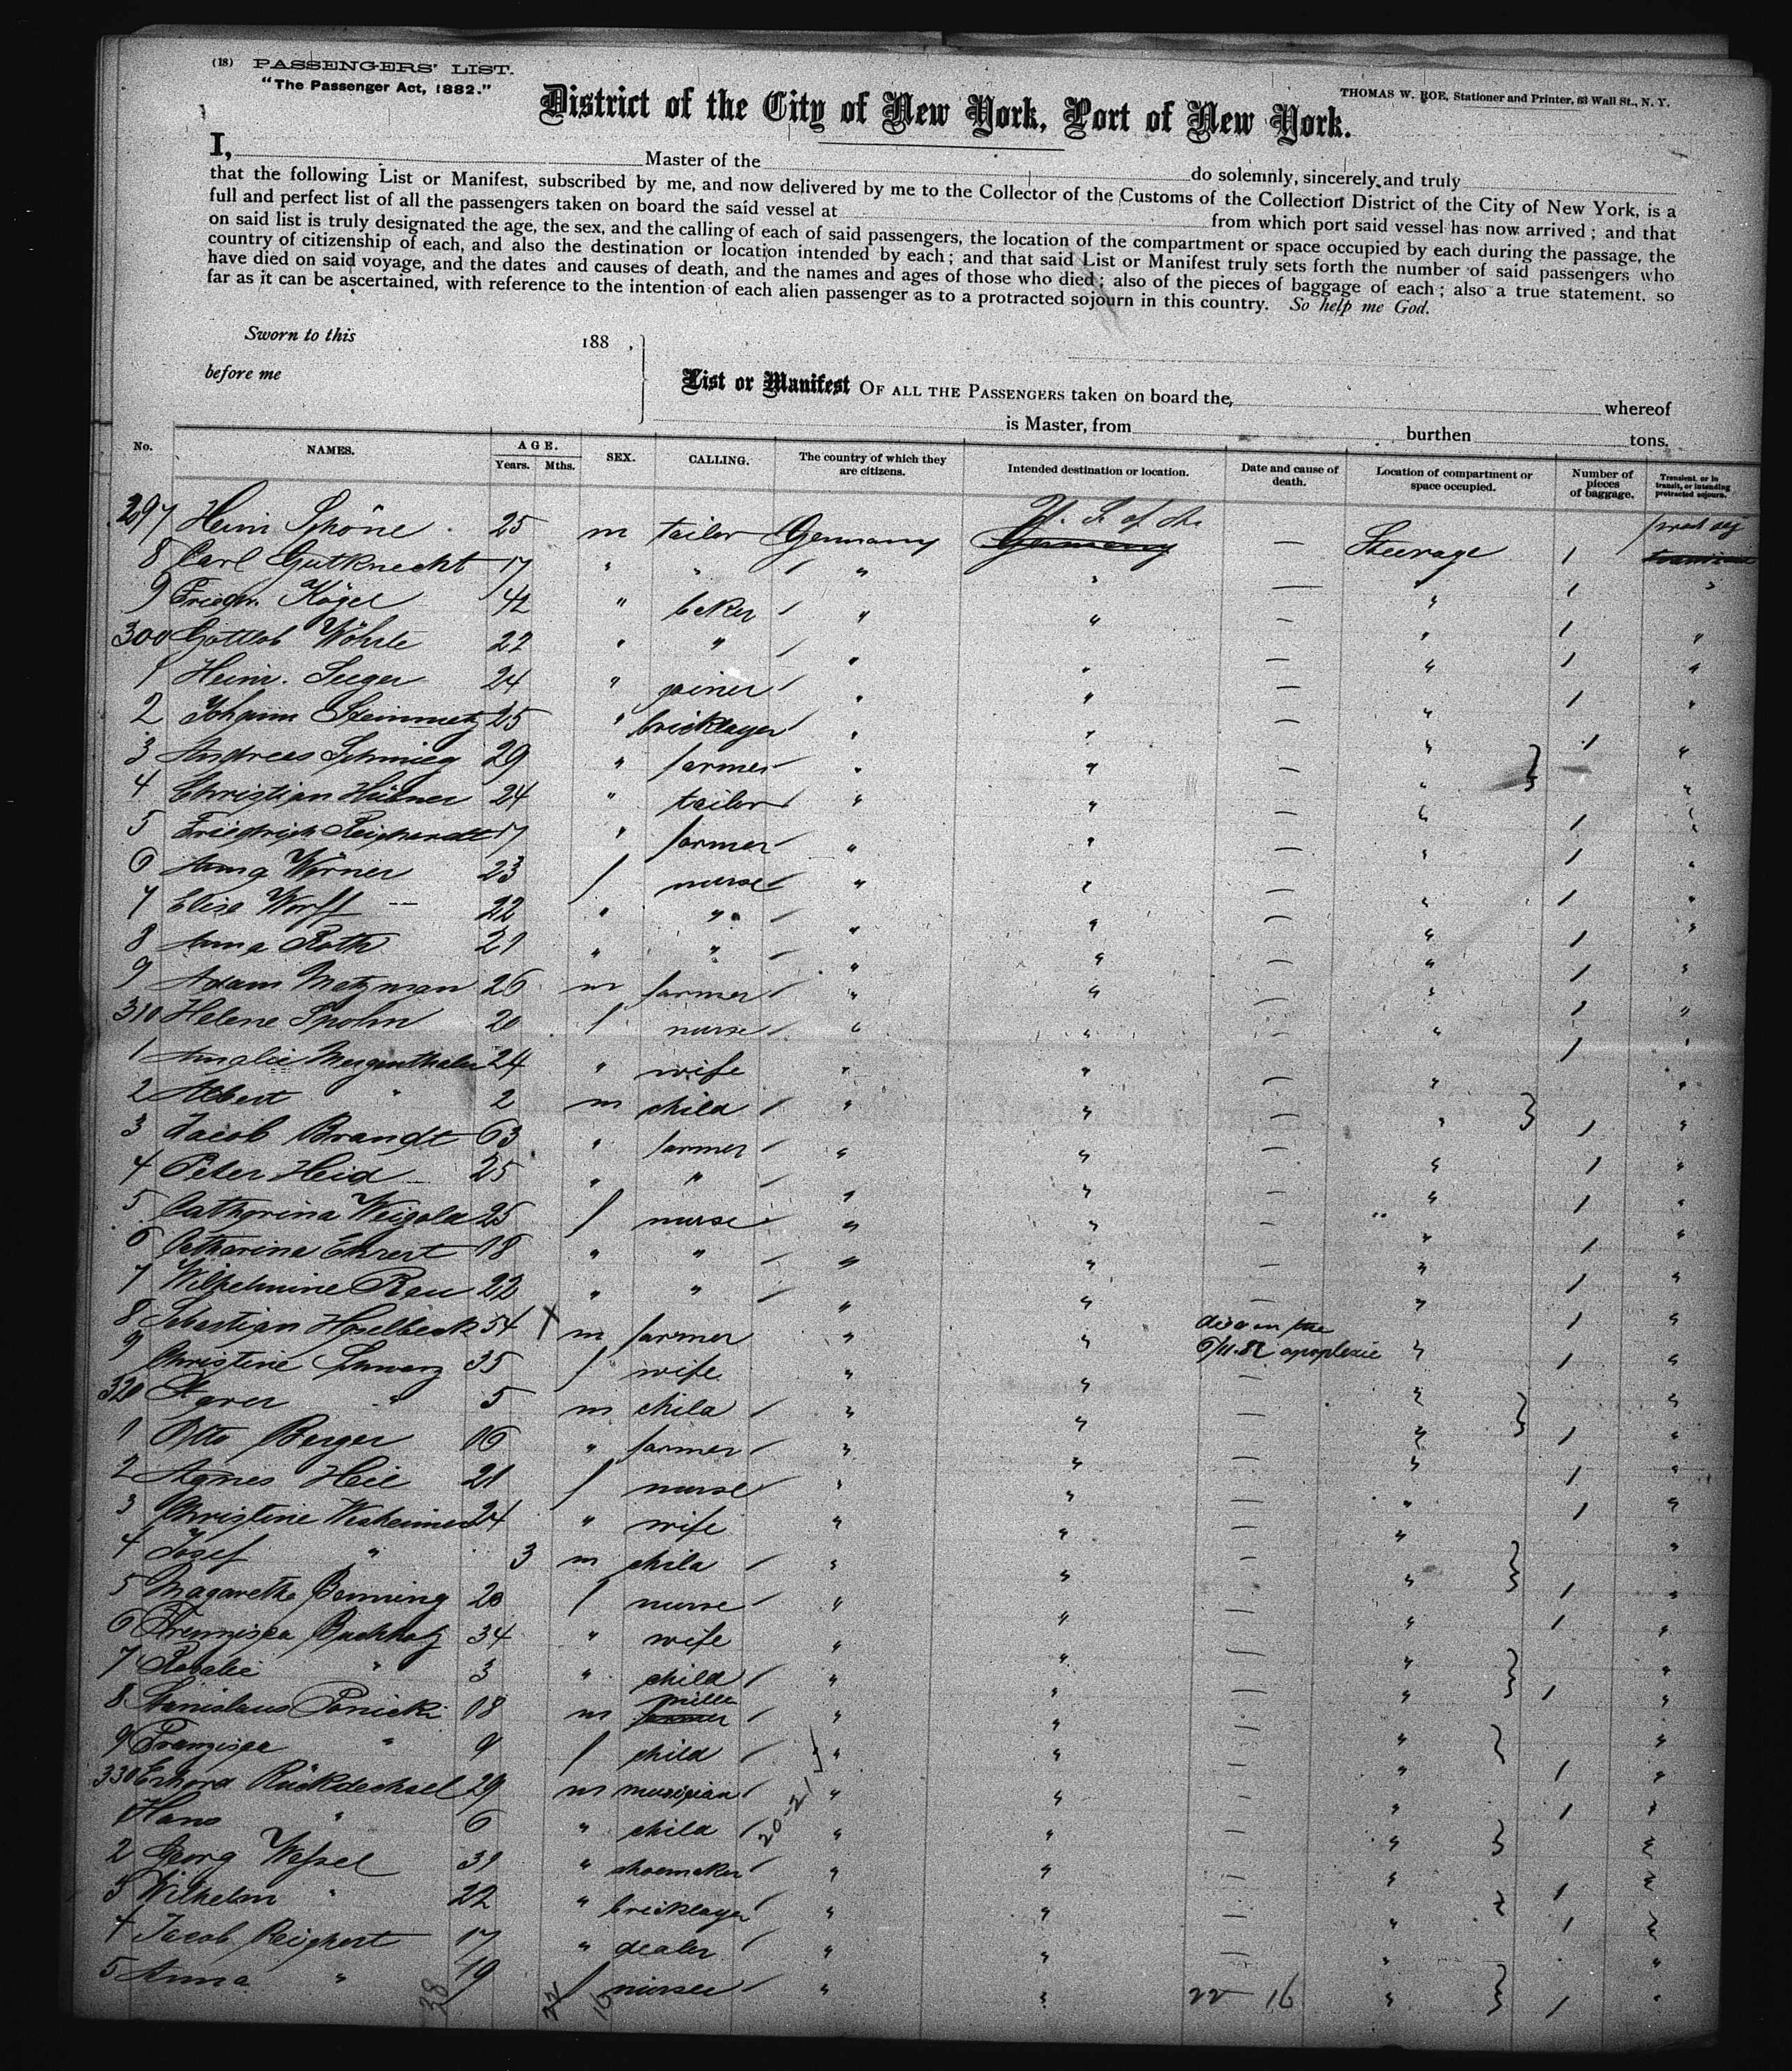 (18) PASSENGERS' LIST.
"The Passenger Act, 1882."
THOMAS W. ROE, Stationer and Printer, 63 Wall St., N. Y.
District of the City of New York, Port of New York.
I, Master of the do solemnly, sincerely and truly
that the following List or Manifest, subscribed by me, and now delivered by me to the Collector of the Customs of the Collection District of the City of New York, is a
full and perfect list of all the passengers taken on board the said vessel at from which port said vessel has now arrived; and that
on said list is truly designated the age, the sex, and the calling of each of said passengers, the location of the compartment or space occupied by each during the passage, the
country of citizenship of each, and also the destination or location intended by each; and that said List or Manifest truly sets forth the number of said passengers who
have died on said voyage, and the dates and causes of death, and the names and ages of those who died; also of the pieces of baggage of each; also a true statement, so
far as it can be ascertained, with reference to the intention of each alien passenger as to a protracted sojourn in this country. So help me God.
Sworn to this 188 ,
before me
List or Manifest OF ALL THE PASSENGERS taken on board the, whereof
is Master, from burthen tons.
No. NAMES. AGE. Years. Mths. SEX. CALLING. The country of which they are citizens. Intended destination or location. Date and cause of death. Location of compartment or space occupied. Number of pieces of baggage. Transient, or in transit, or intending protracted sojourn.
297 Heinr Schöne 25 m tailor Germany U. S. of A. Germany — Steerage 1
8 Carl Gutknecht 17 " " " " — " 1 "
9 Friedr. Kögel 42 " beker " " — " 1 "
300 Gottlob Wöhrle 22 " " " " — " 1 "
1 Heinr. Seeger 24 " joiner " " — " 1 "
2 Johann Steinmetz 25 " bricklayer " " — " 1 "
3 Andreas Schmieg 29 " farmer " " — " "
4 Christian Hübner 24 " tailor " " — " 1 "
5 Friedrich Reichardt 17 " farmer " " — " 1 "
6 Anna Wörner 23 f nurse " " — " 1 "
7 Elise Worff 22 " " " " — " 1 "
8 Anna Roth 21 " " " " — " 1 "
9 Adam Matzman 26 m farmer " " — " 1 "
310 Helene Spohn 20 f nurse " " — " 1 "
1 Amalie Mergenthaler 24 " wife " " — " "
2 Albert " 2 m child " " — " 1 "
3 Jacob Brandt 63 " farmer " " — " 1 "
4 Peter Heid 25 " " " " — " 1 "
5 Catharina Weigold 25 f nurse " " — " 1 "
6 Catharina Ehrert 18 " " " " — " 1 "
7 Wilhelmine Rau 22 " " " " — " 1 "
8 Sebastian Haselbeck 54 X m farmer " " died on the 6/11.82 apoplexie " 1 "
9 Christine Schwarz 35 f wife " " — " "
320 Xaver " 5 m child " " — " 1 "
1 Otto Berger 16 " farmer " " — " 1 "
2 Agnes Heil 21 f nurse " " — " 1 "
3 Christine 24 " wife " " — " "
4 Josef " 3 m child " " — " 1 "
5 Magaretha Benning 20 f nurse " " — " 1 "
6 Buchholz 34 " wife " " — " "
7 Rosalie " 3 " child " " — " 1 "
8 Stanislaus 18 m farmer " " — " "
9 Franzisca " 9 f child " " — " 1 "
330 Erhard Rückdeschel 29 m musician " " — " 1 "
1 Hans " 6 " child 20-21 " " — " "
2 Georg Wessel 31 " shoemaker " " — " 1 "
3 Wilhelm " 22 " bricklayer " " — " 1 "
4 Jacob Reichert 17 " dealer " " — " "
5 Anna " 19 f nurse " " " 1 "
38 22 16 22 16